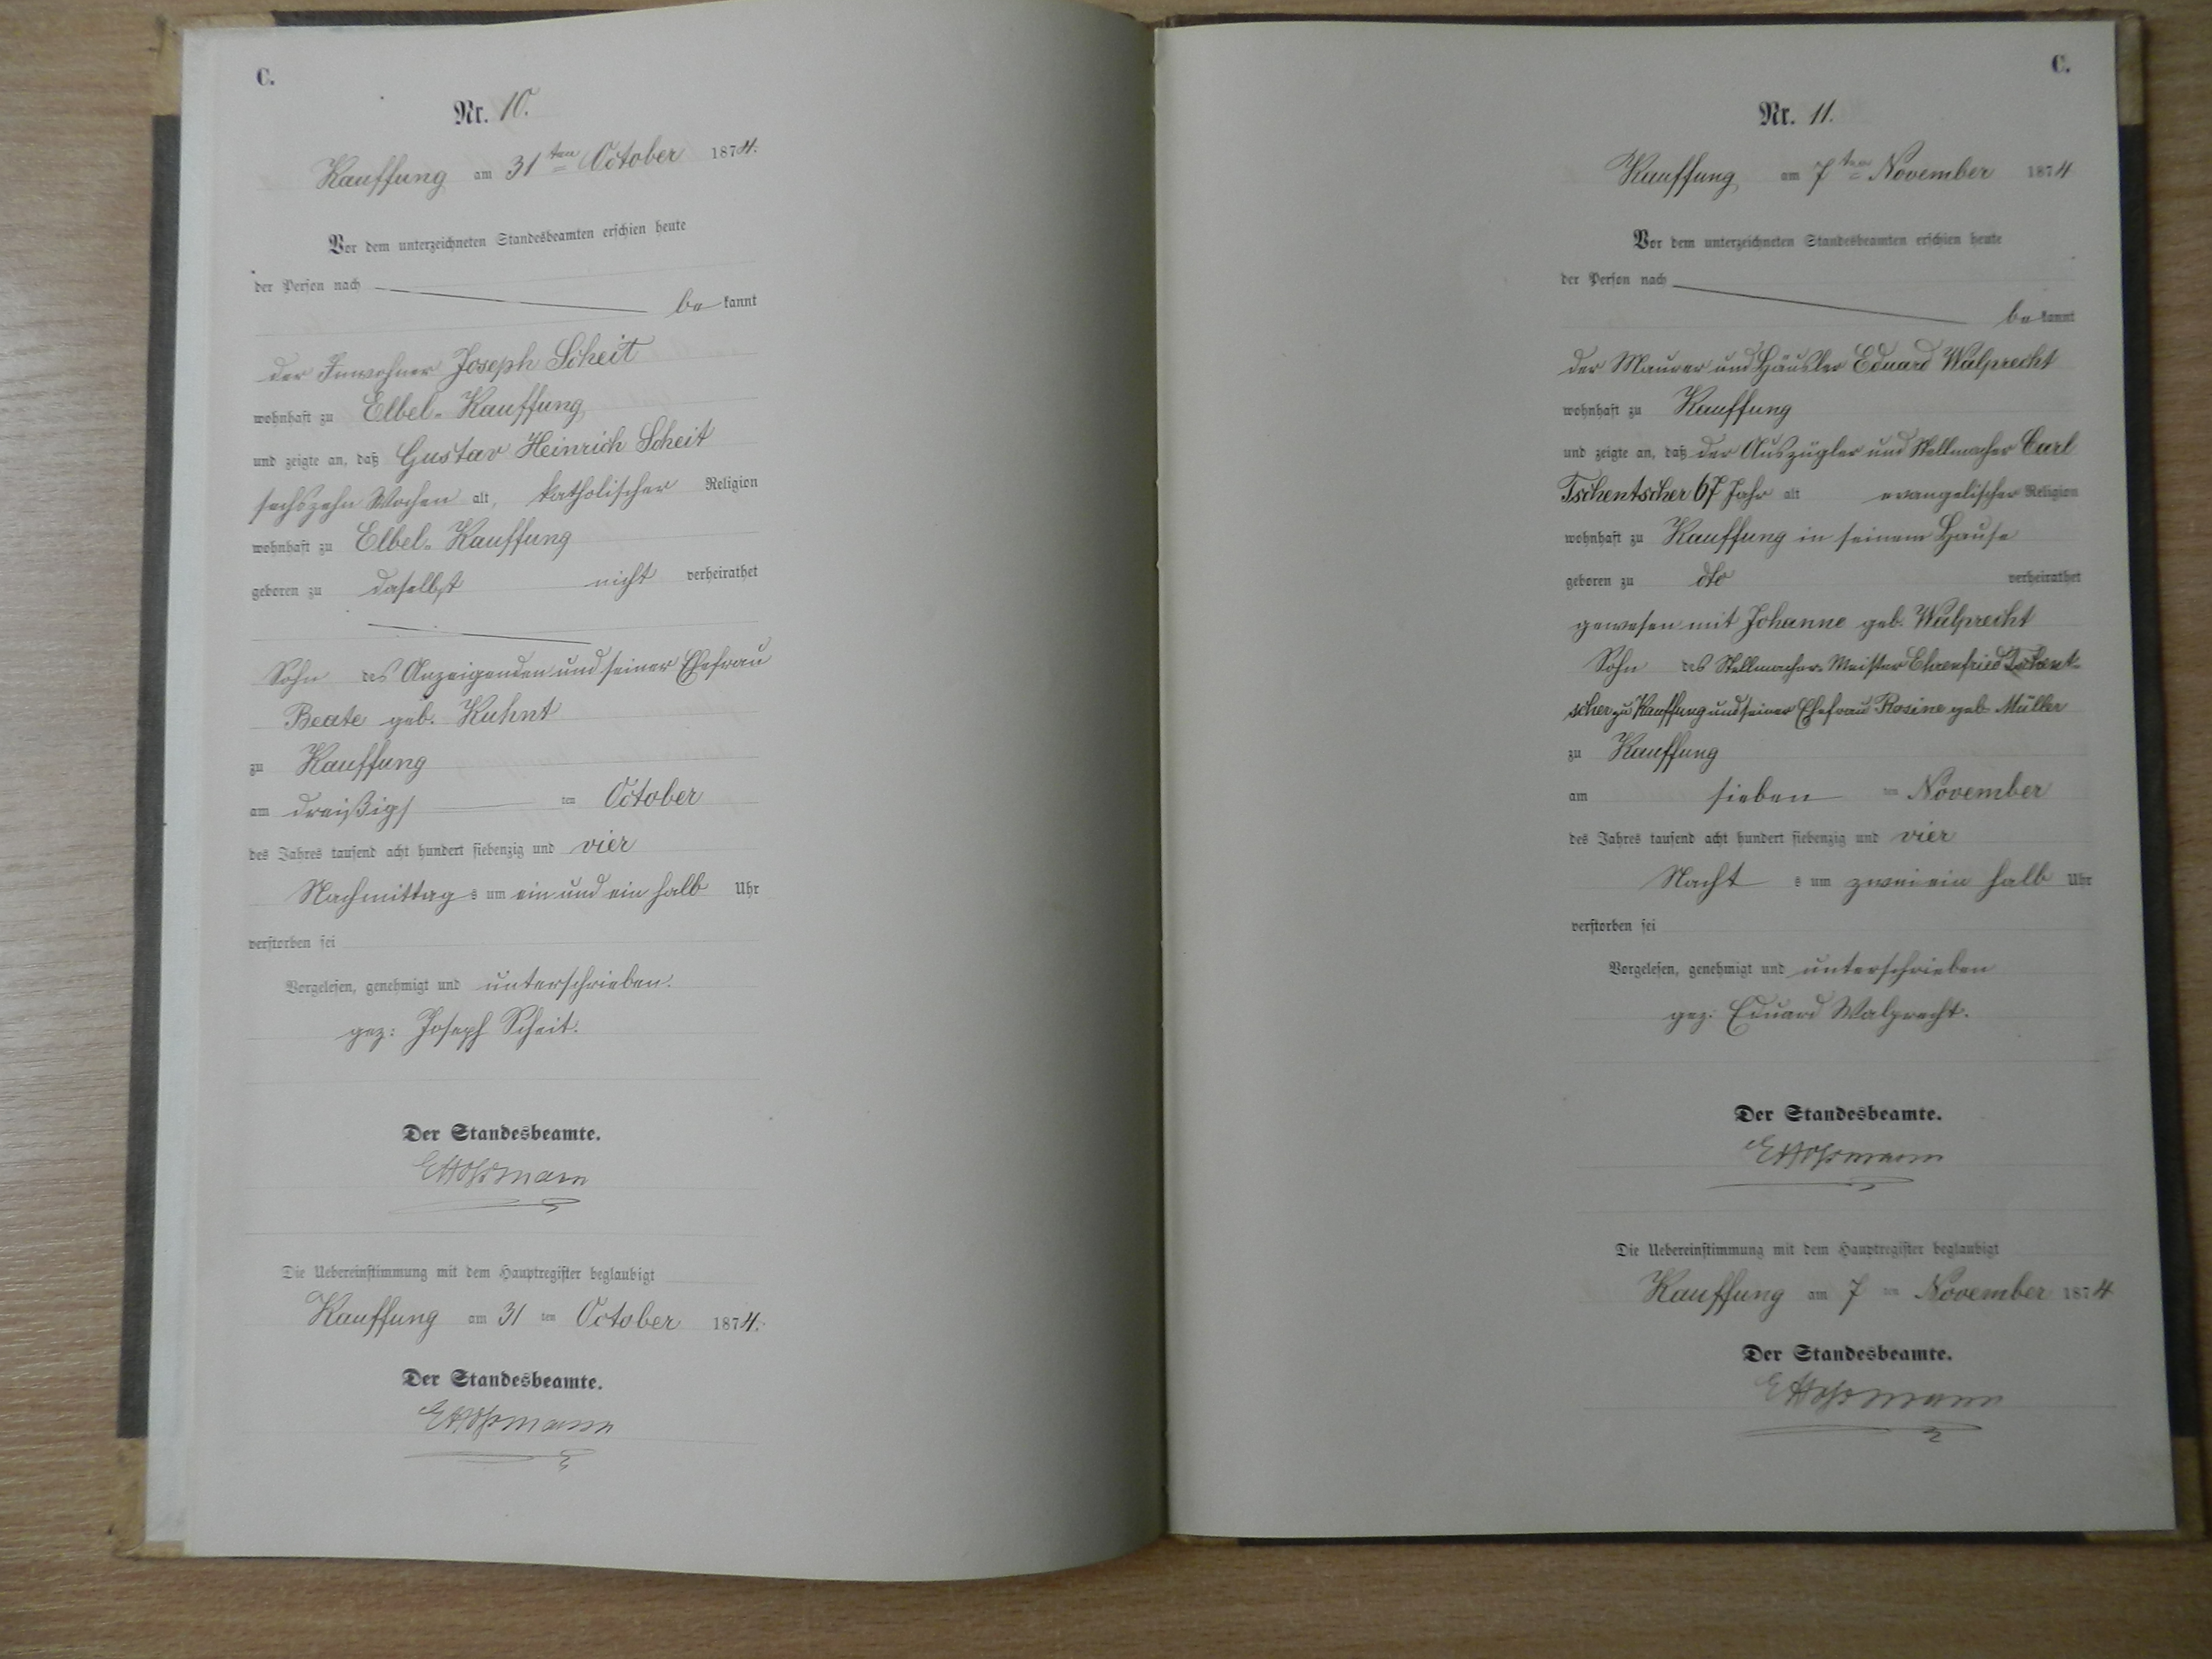 C.
Nr. 10.
Kauffung am 31ten October 1874.
Vor dem unterzeichneten Standesbeamten erschien heute
der Person nach
be kannt
der Inwohner Joseph Scheit
wohnhaft zu Elbel-Kauffung
und zeigte an, daß Gustav Heinrich Scheit
sechszehn Wochen alt, katholischer Religion
wohnhaft zu Elbel-Kauffung
geboren zu daselbst nicht verheirathet
Sohn des Anzeigenden und seiner Ehefrau
Beate geb. Kuhnt
zu Kauffung
am dreißigs ten October
des Jahres tausend acht hundert siebenzig und vier
Nachmittag s um ein und ein halb Uhr
verstorben sei
Vorgelesen, genehmigt und unterschrieben.
gez: Joseph Scheit.
Der Standesbeamte.
Die Uebereinstimmung mit dem Hauptregister beglaubigt
Kauffung am 31 ten October 1874.
Der Standesbeamte.
C.
Nr. 11.
Kauffung am 7ten November 1874
Vor dem unterzeichneten Standesbeamten erschien heute
der Person nach
be kannt
der Maurer und Häusler Eduard Walprecht
wohnhaft zu Kauffung
und zeigte an, daß der Auszügler und Stellmacher Carl
Tschentscher 67 Jahr alt evangelischer Religion
wohnhaft zu Kauffung in seinem Hause
geboren zu dto verheirathet
gewesen mit Johanne geb. Walprecht
Sohn des Stellmacher-Meister Ehrenfried Tschent-
scher zu Kauffung und seiner Ehefrau Rosine geb Müller
zu Kauffung
am sieben ten November
des Jahres tausend acht hundert siebenzig und vier
Nacht s um zwei ein halb Uhr
verstorben sei
Vorgelesen, genehmigt und unterschrieben
gez. Eduard Walprecht.
Der Standesbeamte.
Die Uebereinstimmung mit dem Hauptregister beglaubigt
Kauffung am 7 ten November 1874
Der Standesbeamte.